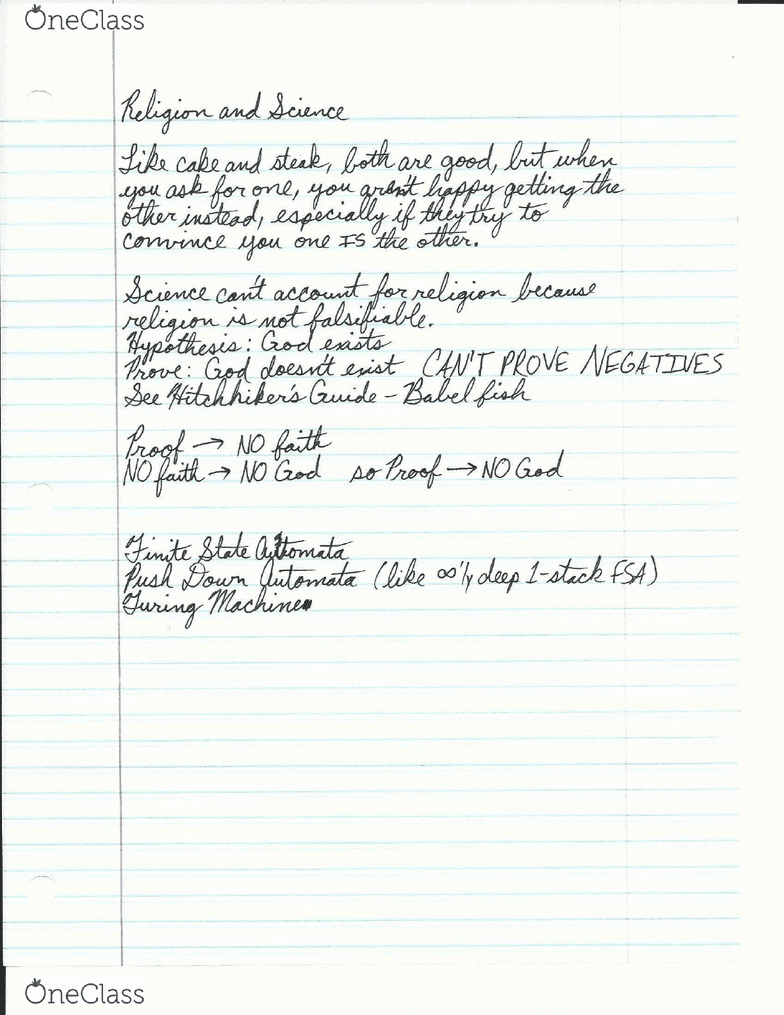 OneClass
Religion and Science
Like cake and steak, both are good, but when
you ask for one, you aren't happy getting the
other instead, especially if they try to
convince you one IS the other.
Science can't account for religion because
religion is not falsifiable.
Hypothesis: God exists
Prove: God doesn't exist CAN'T PROVE NEGATIVES
See Hitchhiker's Guide - Babel fish
Proof → NO faith
NO faith → NO God so Proof → NO God
Finite State Automata
Push Down Automata (like ∞'ly deep 1-stack FSA)
Turing Machine
OneClass